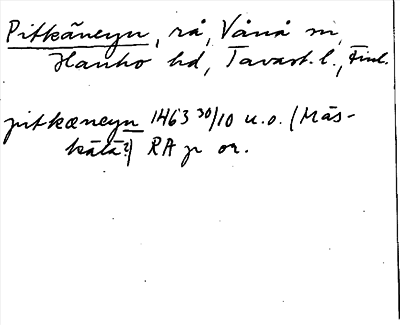 Pitkäneyn, rå, Vånå sn,
Hauho hd, Tavast. l., Finl.
pitkæneyn 1463 30/10 u.o. (Mäs-
kälä?) RA p or.